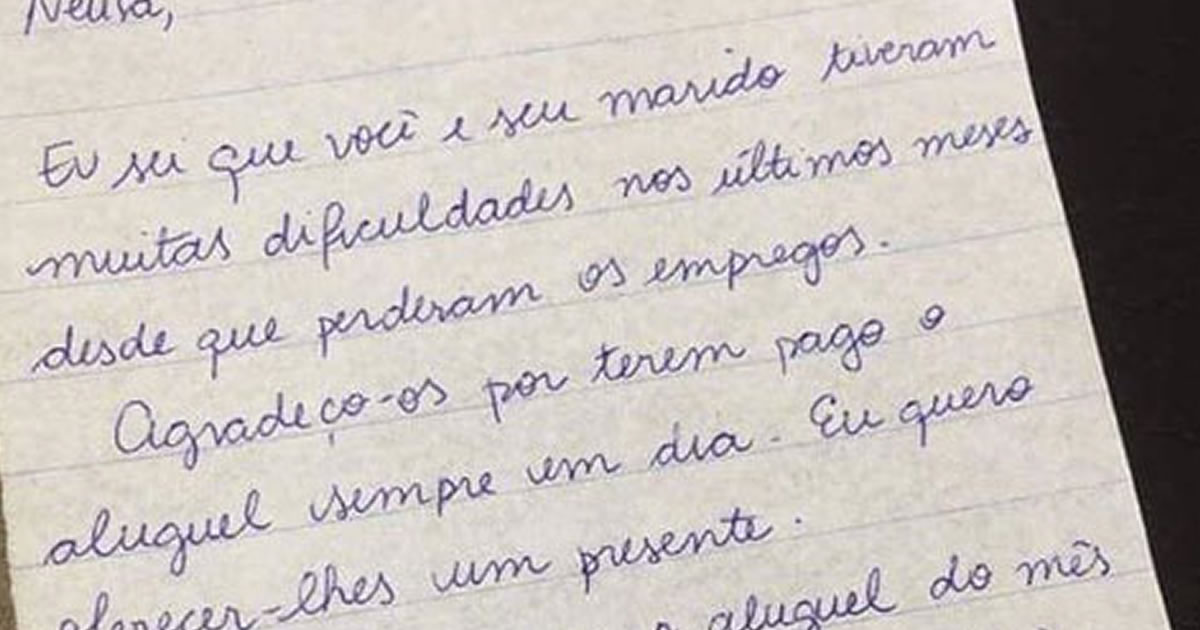 Neusa,
Eu sei que você e seu marido tiveram
muitas dificuldades nos últimos meses
desde que perderam os empregos.
Agradeço-os por terem pago o
aluguel sempre em dia. Eu quero
oferecer-lhes um presente.
aluguel do mês